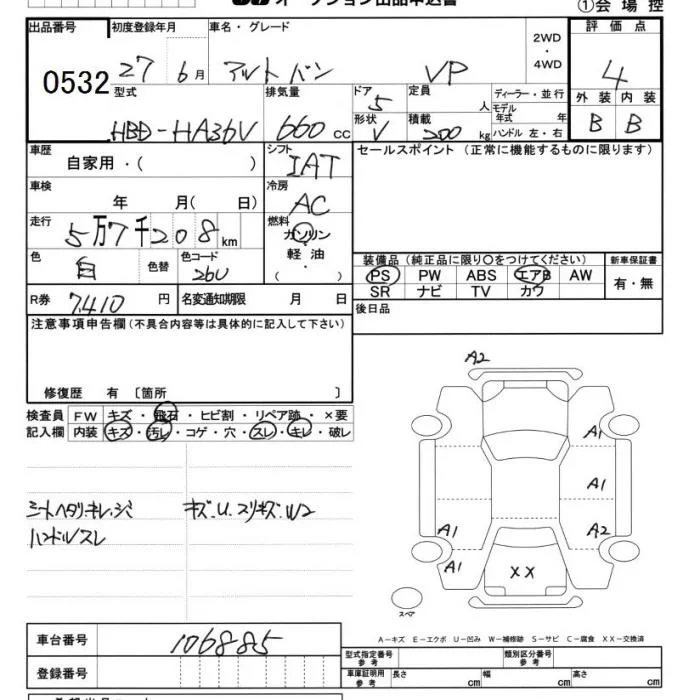 オークション出品申込書
①会場控
出品番号 初度登録年月 車名・グレード 評価点
0532 27 6月 アルトバン VP 2WD・4WD 4
型式 排気量 ドア 定員 ディーラー・並行 外装 内装
HBD-HA36V 660cc 5 人 モデル年式 年 B B
形状 積載 ハンドル 左・右
V 200kg
車歴 シフト セールスポイント(正常に機能するものに限ります)
自家用・( ) IAT
車検 冷房
年 月( 日) AC
走行 燃料
5万7千208km ガソリン・軽油・( )
色 色替 色コード 装備品(純正品に限り〇をつけてください) 新車保証書
白 26U PS PW ABS エアB AW 有・無
SR ナビ TV カワ
R券 7410円 名変通知期限 月 日 後日品
注意事項申告欄(不具合内容等は具体的に記入して下さい)
修復歴 有 〔箇所 〕
検査員記入欄 FW キズ・飛石・ヒビ割・リペア跡・×要
内装 キズ・汚レ・コゲ・穴・スレ・キレ・破レ
シートヘタリ・キレ・シミ キズ・U・スリキズ・W2
ハンドルスレ
A2
A1
A1
A1 A2
A1 XX A1
スペア
A-キズ E-エクボ U-凹み W-補修跡 S-サビ C-腐食 XX-交換済
車台番号 106885
登録番号
型式指定番号 参考 類別区分番号 参考
車庫証明用 参考 長さ cm 幅 cm 高さ cm